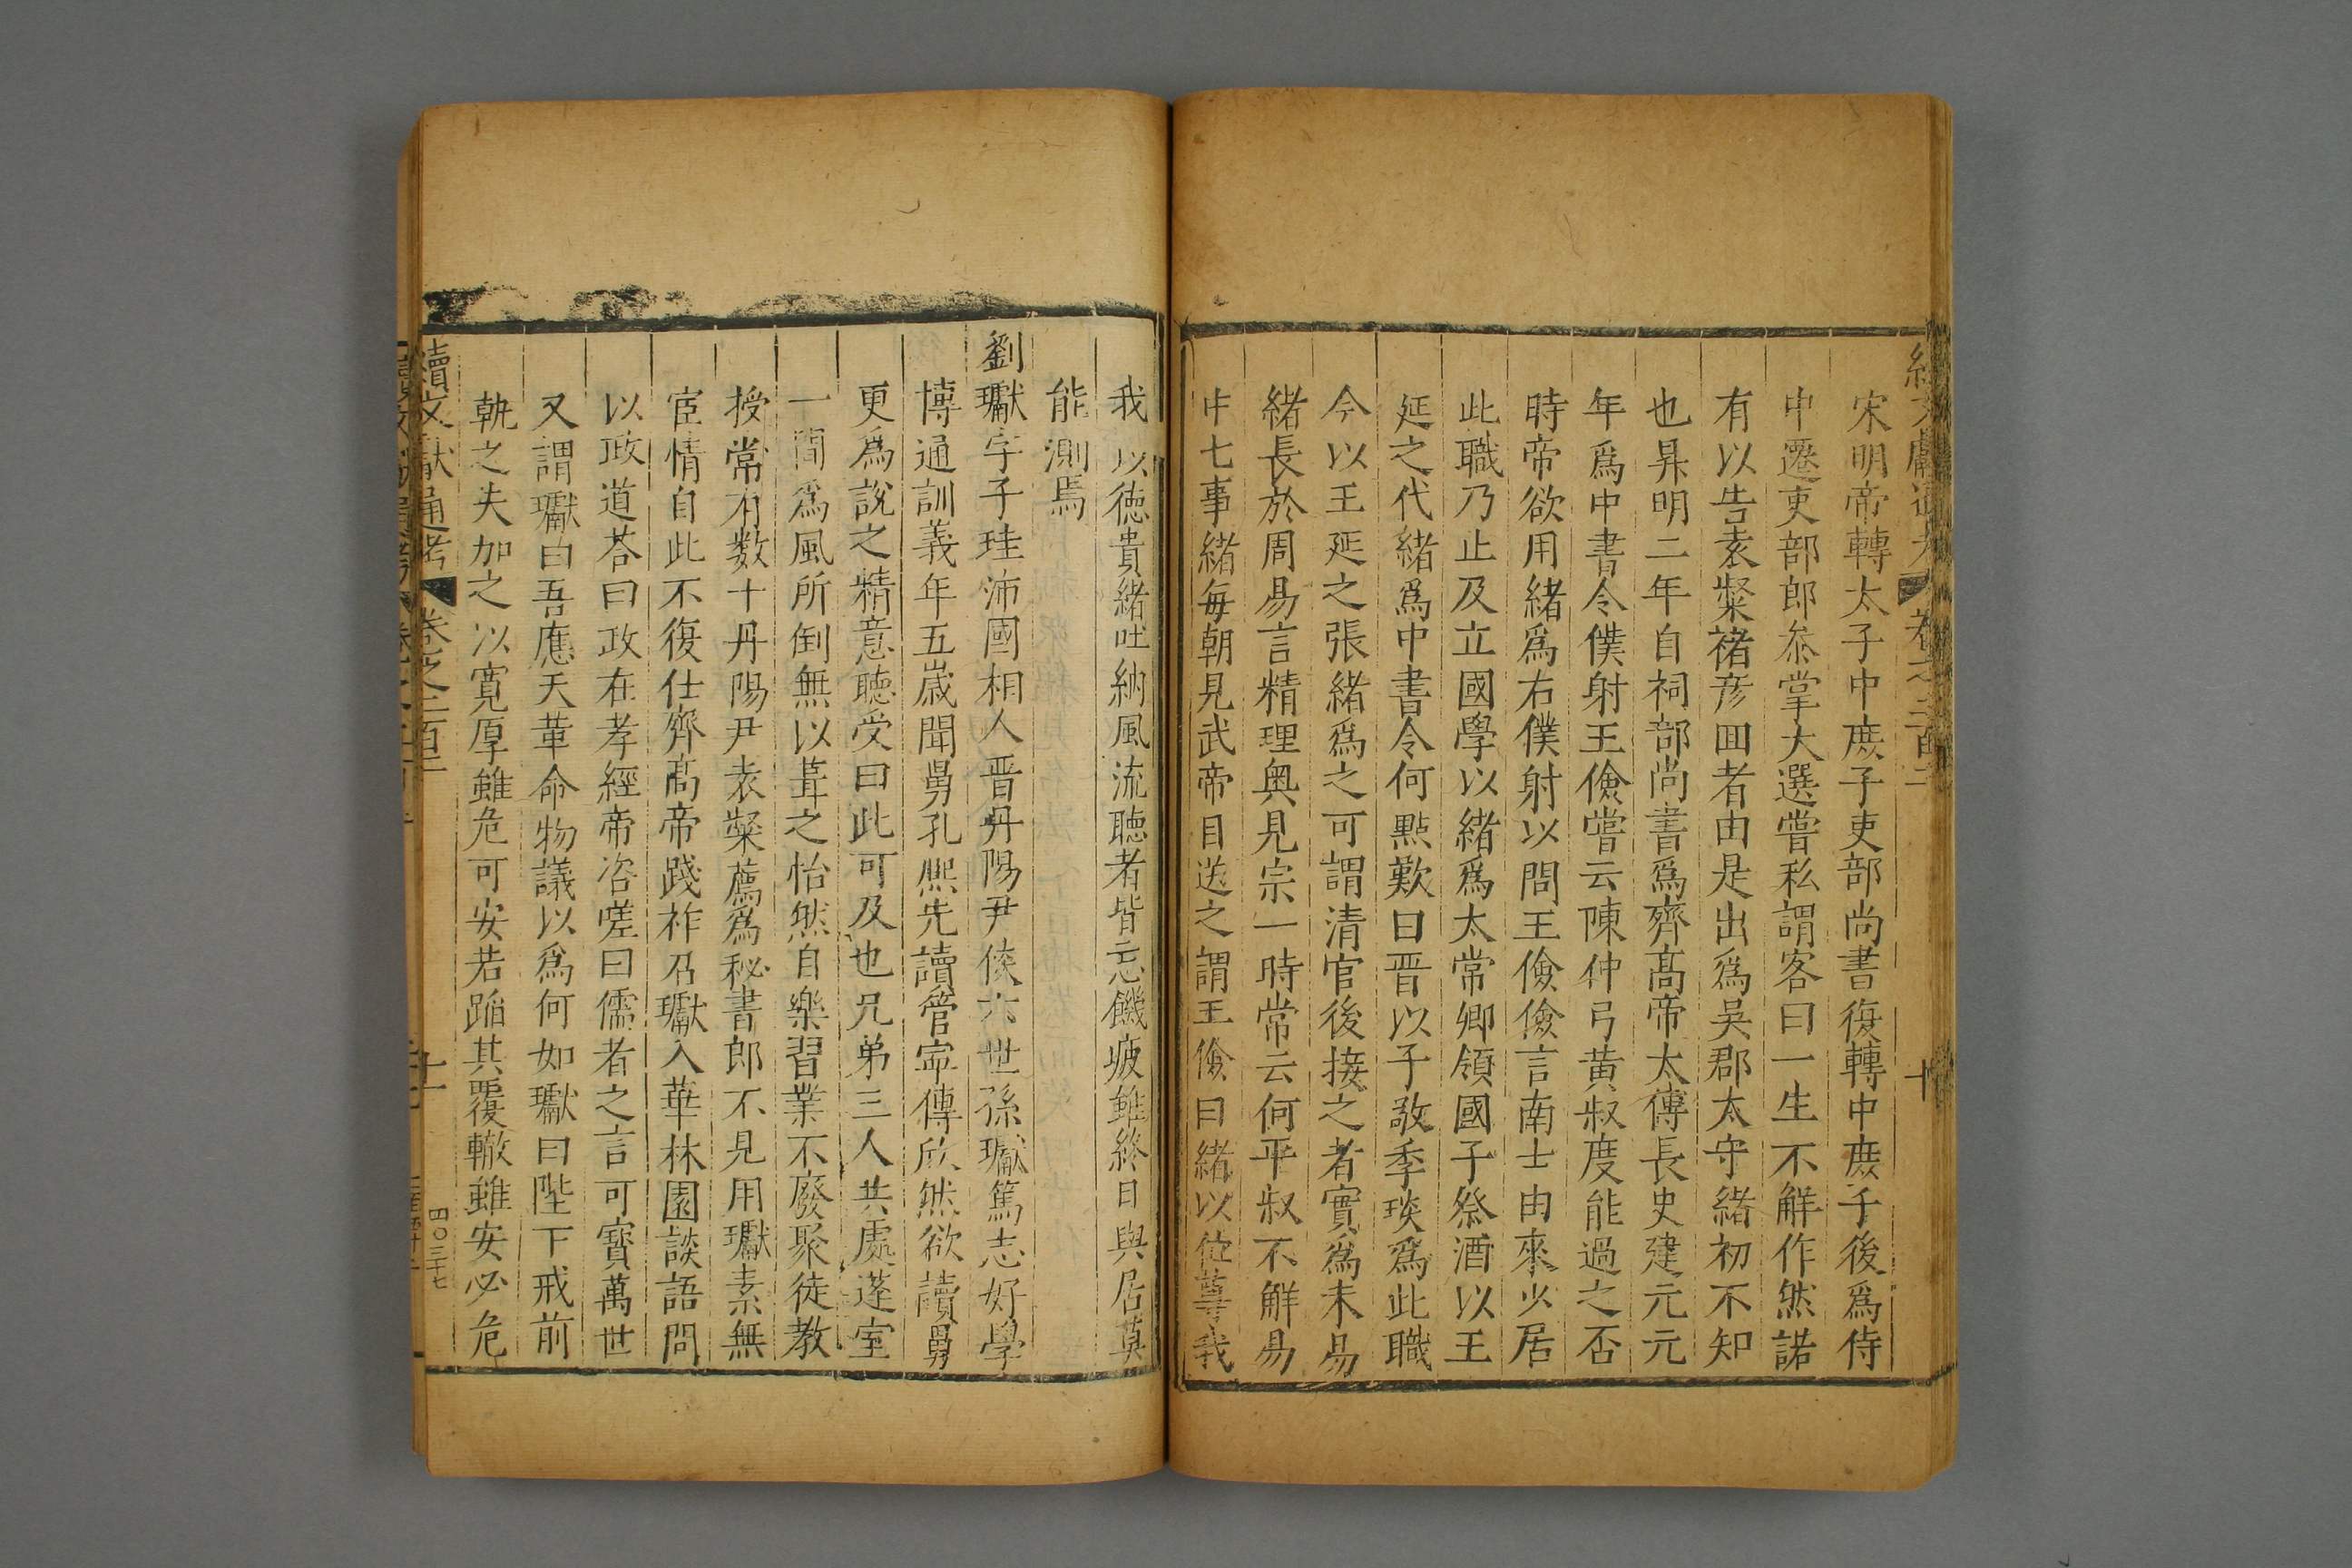 宋明帝轉太子中庶子吏部尚書復轉中庶子後爲侍
中遷吏部郎叅掌大選嘗私謂客曰一生不解作然諾
有以告袁粲褚彦回者由是出爲吳郡太守緒初不知
也昇明二年自祠部尚書爲齊髙帝太傅長史建元元
年爲中書令僕射王儉嘗云陳仲弓黄叔度能過之否
時帝欲用緒爲右僕射以問王儉儉言南士由來少居
此職乃止及立國學以緒爲太常卿領國子祭酒以王
延之代緒爲中書令何點歎曰晋以子敬季琰爲此職
今以王延之張緒爲之可謂清官後接之者實爲未易
緒長於周易言精理奥見宗一時常云何平叔不解易
中七事緒每朝見武帝目送之謂王儉曰緒以位尊我
我以徳貴緒吐納風流聽者皆忘饑疲雖終日與居莫
能測焉
劉瓛字子珪沛國相人晋丹陽尹惔六世孫瓛篤志好學
博通訓義年五歳聞舅孔熈先讀管寧傳欣然欲讀舅
更爲説之精意聽受曰此可及也兄弟三人共處蓬室
一間爲風所倒無以葺之怡然自樂習業不廢聚徒教
授常有数十丹陽尹袁粲薦爲秘書郎不見用瓛素無
宦情自此不復仕齊髙帝踐祚召瓛入華林園談語問
以政道荅曰政在孝經帝咨嗟曰儒者之言可寳萬世
又謂瓛曰吾應天革命物議以爲何如瓛曰陛下戒前
軌之失加之以寛厚雖危可安若蹈其覆轍雖安必危
續文獻通考 卷之二百二
十一
四〇三十七